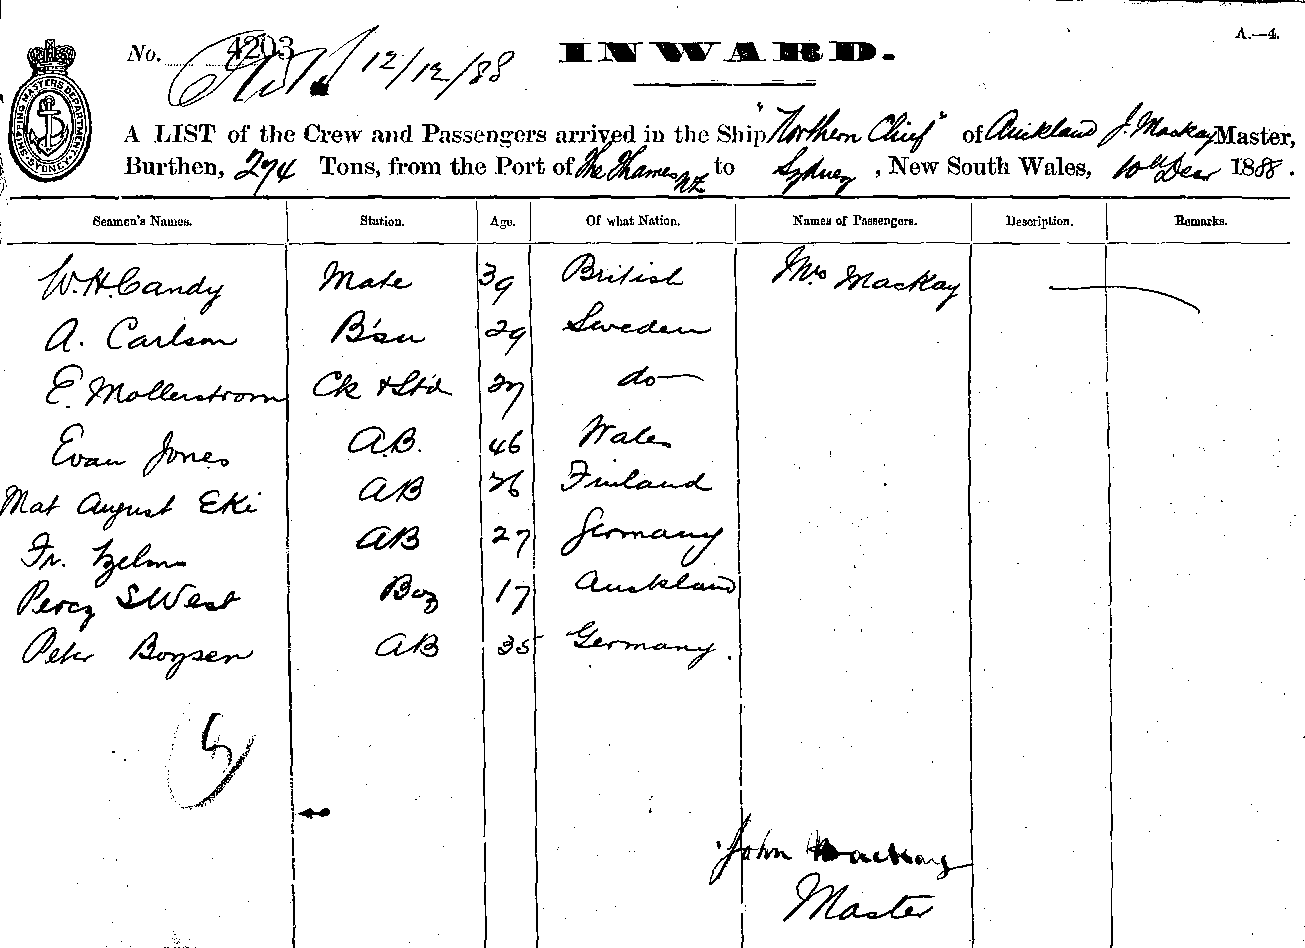 A.—4.
No. 4203 12/12/88 INWARD.
SHIPPING MASTERS DEPARTMENT SYDNEY
A LIST of the Crew and Passengers arrived in the Ship "Northern Chief" of Auckland J. Mackay Master,
Burthen, 274 Tons, from the Port of The Thames NZ to Sydney, New South Wales, 10th Decr 1888.
Seamen's Names. Station. Age. Of what Nation. Names of Passengers. Description. Remarks.
W. H. Candy Mate 39 British Mrs Mackay
A. Carlson B'sn 29 Sweden
E. Mollerstrom Ck & Std 27 do
Evan Jones A.B. 46 Wales
Mat August Eki AB 26 Finland
Fr. AB 27 Germany
Percy S West Boy 17 Auckland
Peter Boysen AB 35 Germany.
John Mackay
Master